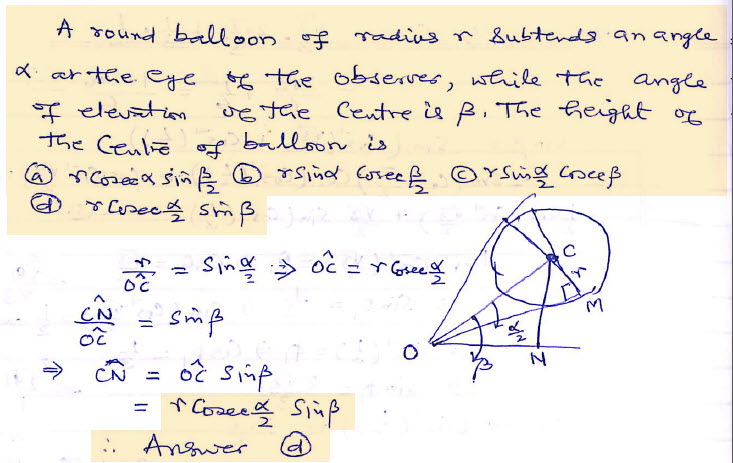 A round balloon of radius r Subtends an angle
α at the eye of the observer, while the angle
of elevation of the Centre is β. The height of
the Centre of balloon is
(a) r Cosec α sin β/2 (b) r Sin α Cosec β/2 (c) r Sin α/2 Cosec β
(d) r Cosec α/2 Sin β
r/OĈ = Sin α/2 ⇒ OĈ = r Cosec α/2
CN̂/OĈ = Sin β
⇒ CN̂ = OĈ Sin β
= r Cosec α/2 Sin β
∴ Answer (d)
C
r
M
α/2
O
β
N